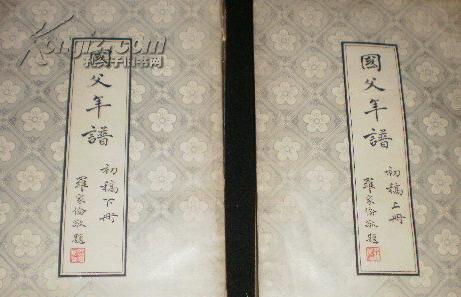 Kongfz.com
孔夫子旧书网
國父年譜
初稿下册
羅家倫敬題
國父年譜
初稿上册
羅家倫敬題